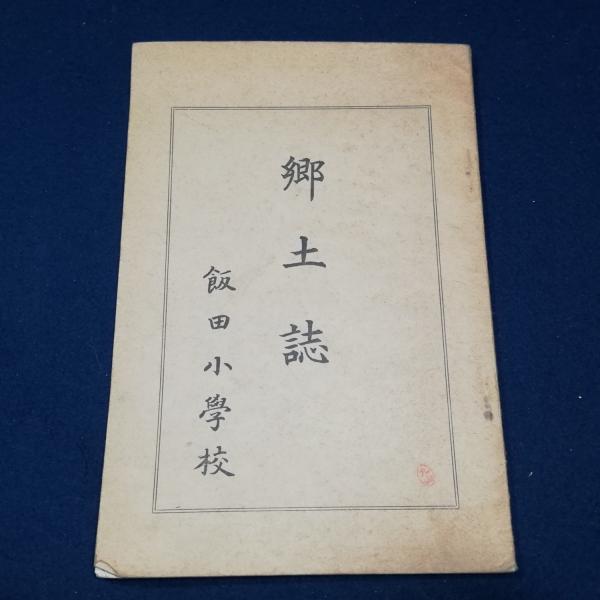 郷土誌
飯田小學校